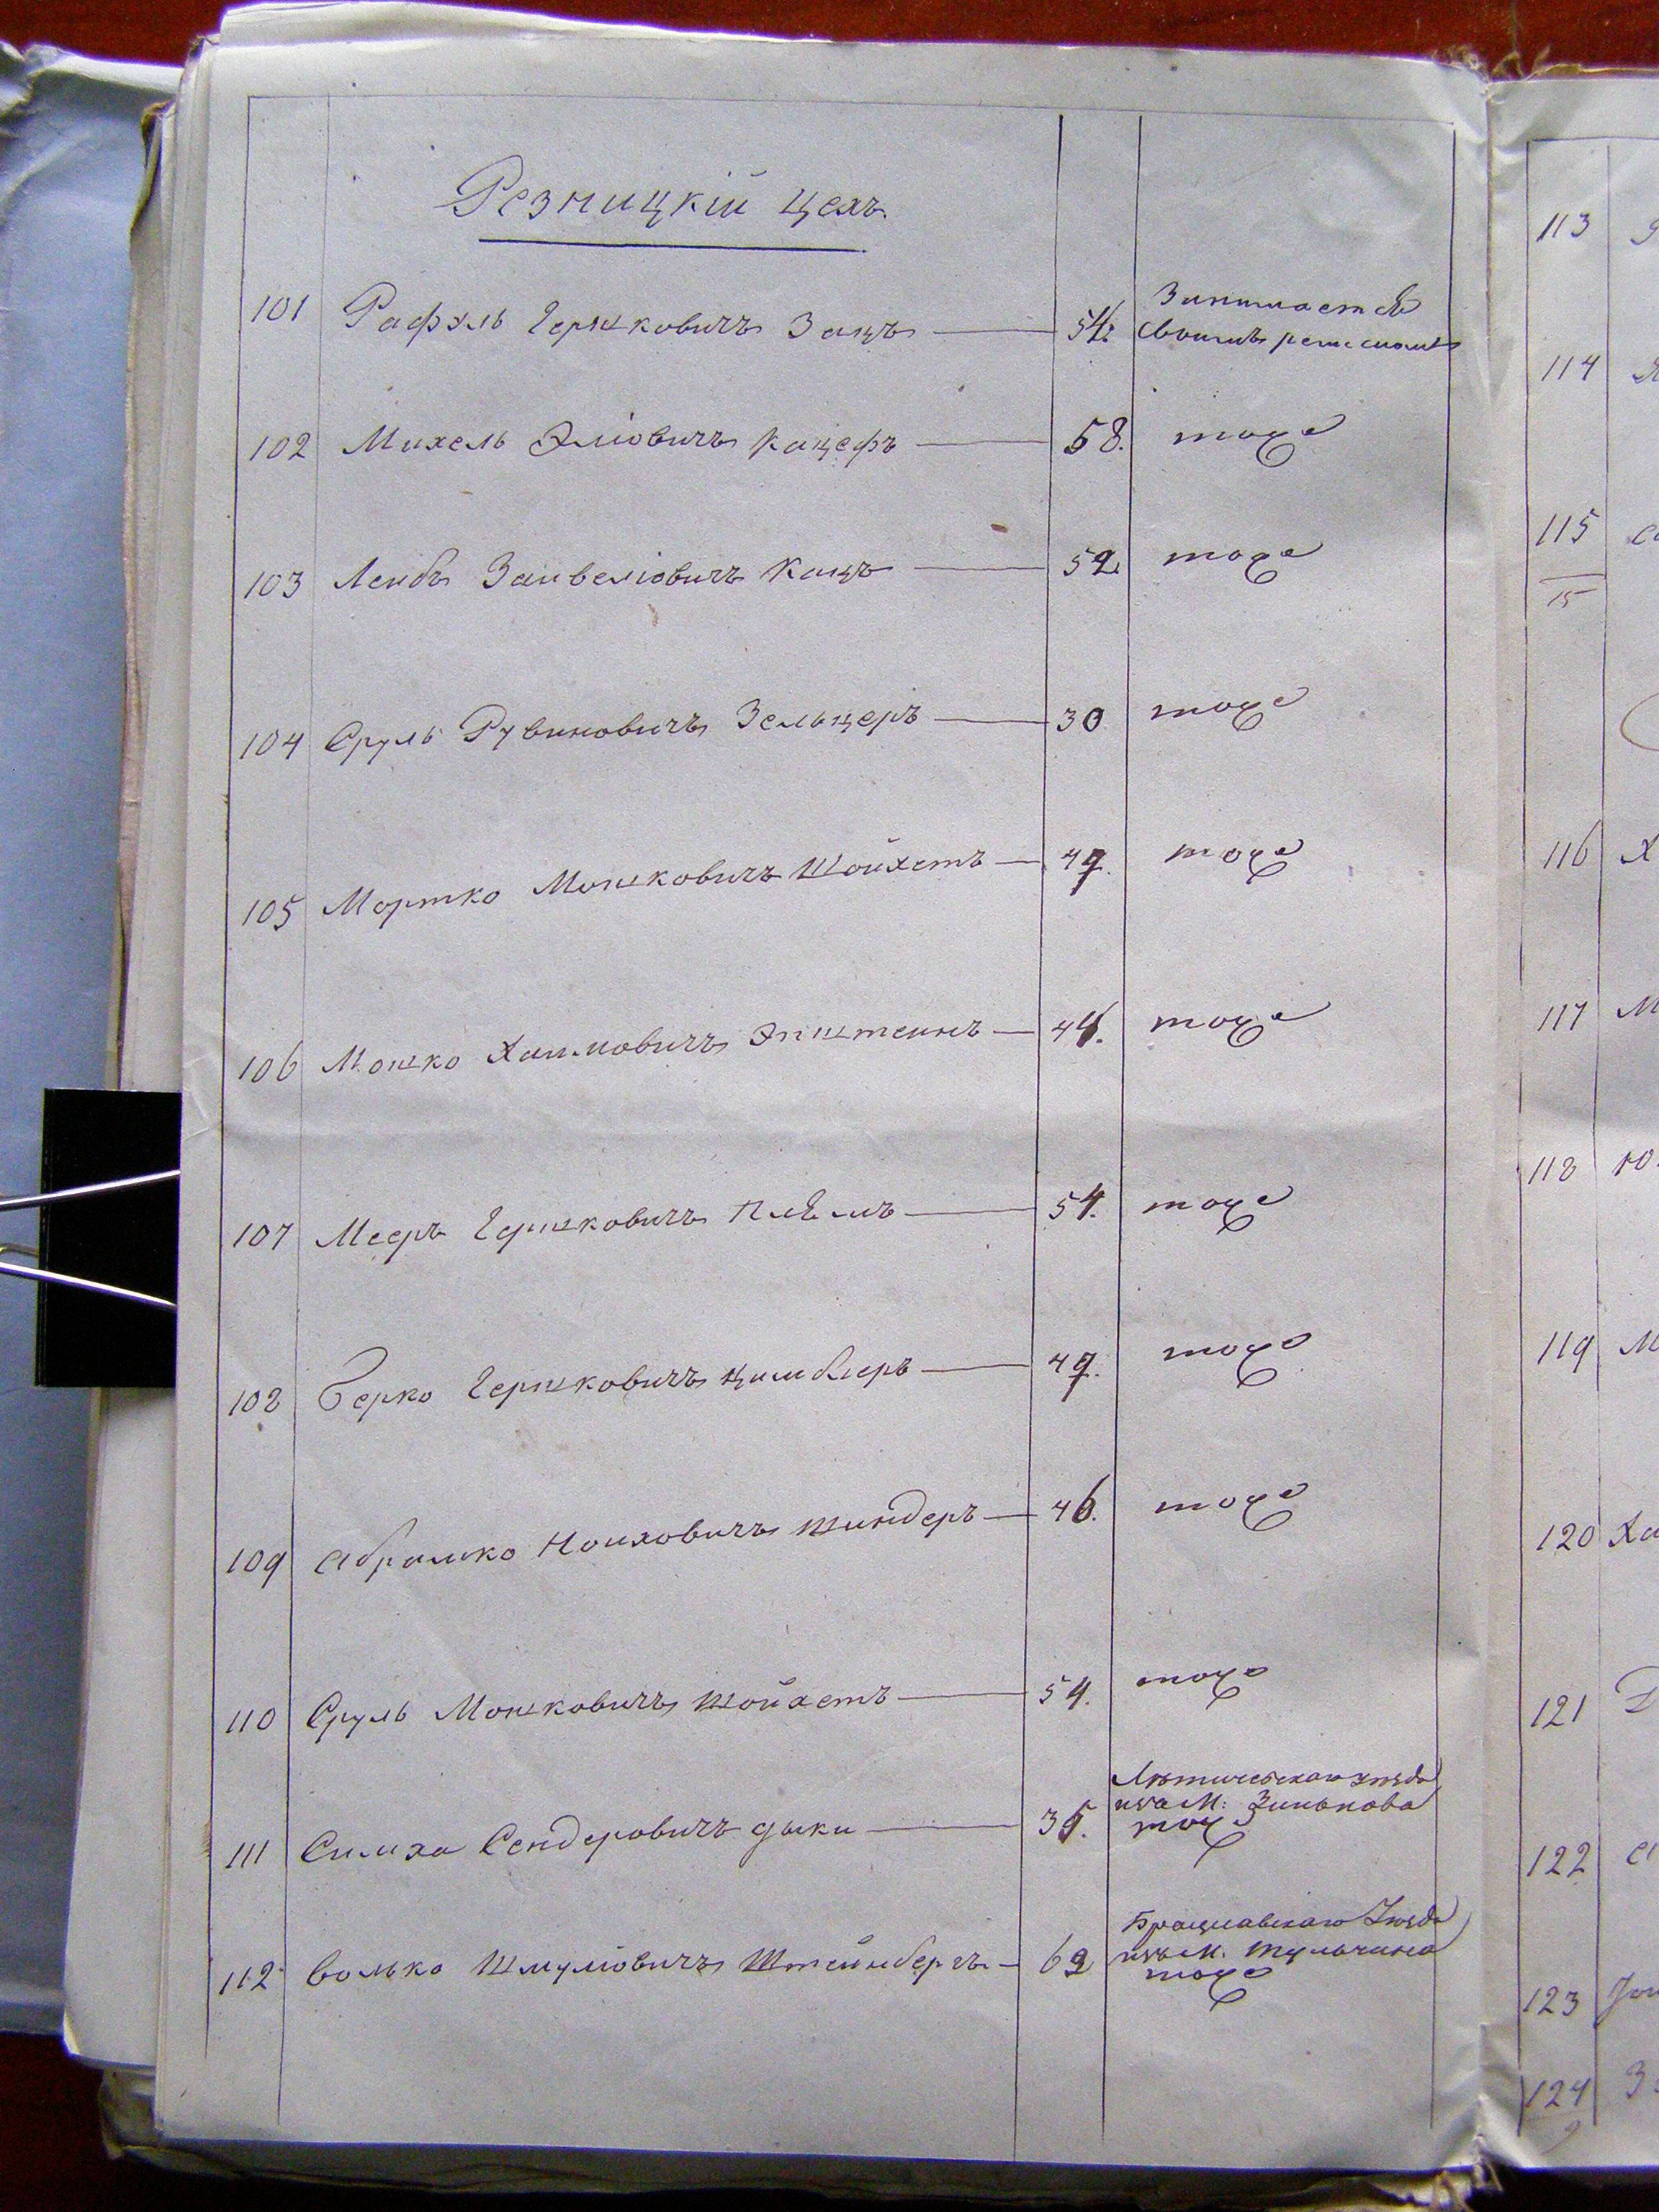 Резницкій цехъ
101 Рафэль Гершковичъ Зацъ 54. Занимается
своимъ ремесломъ
102 Михель Эліовичъ Кацефъ 58. тоже
103 Лейбъ Занвеліовичъ Кацъ 52. тоже
104 Сруль Рувиновичъ Зельцеръ 30 тоже
105 Мортко Мошковичъ Шойхетъ 47. тоже
106 Мошко Хаимовичъ Эпштейнъ 44. тоже
107 Мееръ Гершковичъ 54. тоже
108 Берко Гершковичъ Цимблеръ 47. тоже
109 Абрамко Ноиховичъ Шиндеръ 46. тоже
110 Сруль Мошковичъ Шойхетъ 54. тоже
111 Симха Сендеровичъ 35. Лѣтичевскаго уѣзда
изъ М: Зинькова
тоже
112 Волько Шмуліовичъ Штейнбергъ 62 Брацлавскаго Уѣзда
изъ М. Тульчина
тоже
113
114
115
15
116 Х
117 М
118 Ю
119 М
120 Ха
121
122
123
124